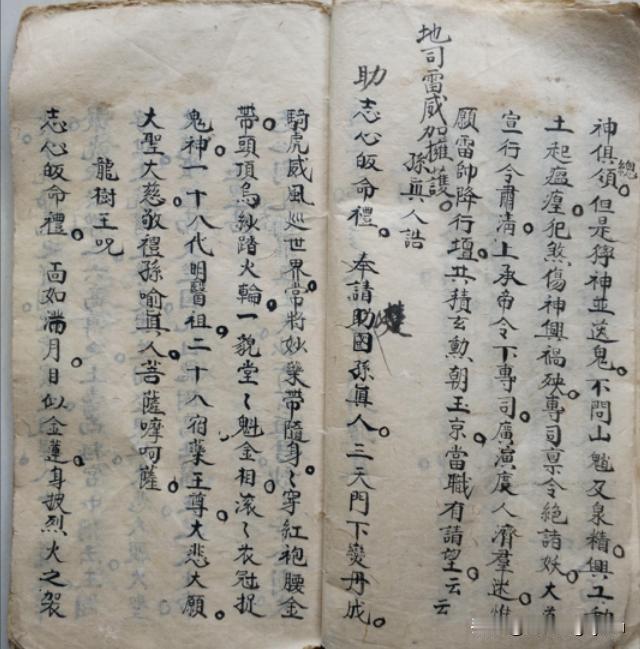 神俱領。但是得神並送鬼。不問山魈及泉精。興工動
總
土起瘟瘴。犯煞傷神興禍殃。專司稟令絕諸妖。大
宣行令肅清。上承帝令下專司。廣演度人濟羣迷。惟
願雷帥降行壇。共積玄勲朝玉京。當職有請望。云云
地司雷威加擁護。
孫真人誥
助 志心皈命禮。 奉請助國孫真人。三天門下變丹成。
騎虎威風巡世界。常將妙藥帶隨身。〻穿紅袍腰金
帶。頭頂烏紗踏火輪。一貌堂〻魁金相。滚〻衣冠捉
鬼神。一十八代明醫祖。二十八宿藥王尊。大悲大願。
大聖大慈。敬禮孫喻真人。菩薩摩呵薩。
龍樹王咒
志心皈命禮。面如滿月。目似金蓮。身披烈火之袈